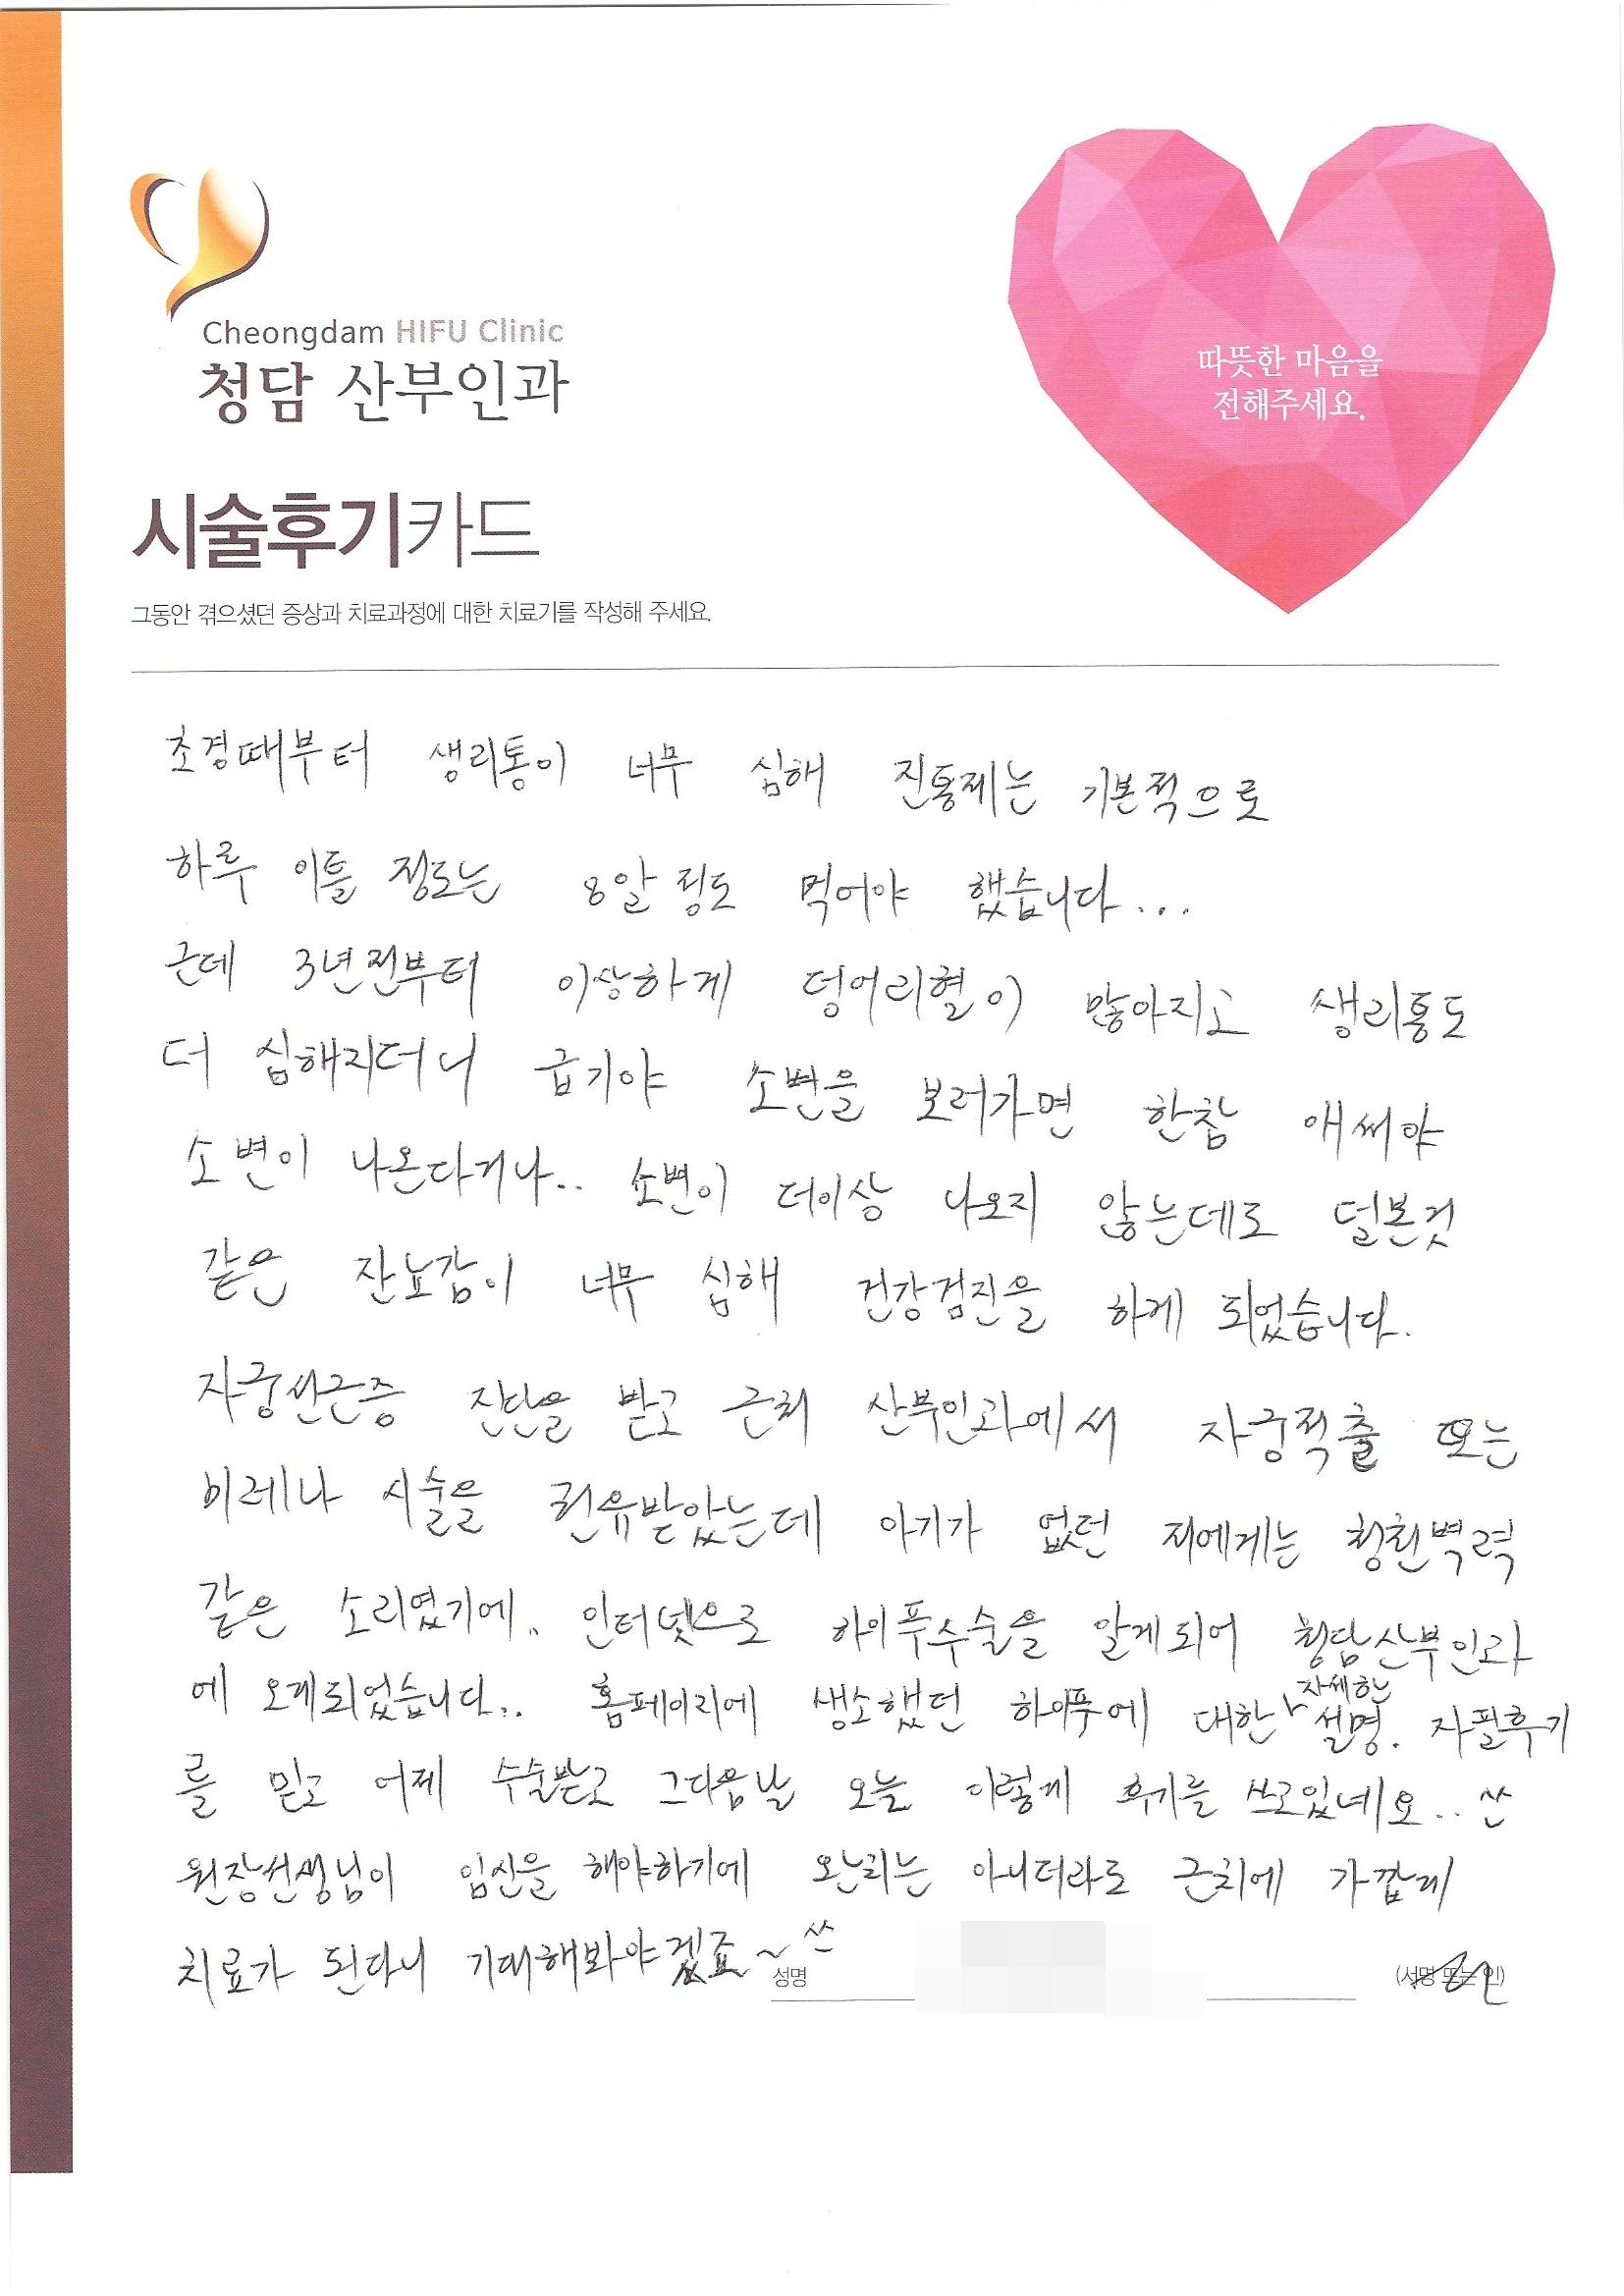 Cheongdam HIFU Clinic
청담 산부인과
따뜻한 마음을
전해주세요.
시술후기카드
그동안 겪으셨던 증상과 치료과정에 대한 치료기를 작성해 주세요.
초경때부터 생리통이 너무 심해 진통제는 기본적으로
하루 이틀 정도는 8알 정도 먹어야 했습니다...
근데 3년전부터 이상하게 덩어리혈이 많아지고 생리통도
더 심해지더니 급기야 소변을 보러가면 한참 애써야
소변이 나온다거나.. 소변이 더이상 나오지 않는데도 덜본것
같은 잔뇨감이 너무 심해 건강검진을 하게 되었습니다.
자궁선근증 진단을 받고 근처 산부인과에서 자궁적출 또는
미레나 시술을 권유받았는데 아기가 없던 저에게는 청천벽력
같은 소리였기에.. 인터넷으로 하이푸수술을 알게되어 청담산부인과
에 오게되었습니다.. 홈페이지에 생소했던 하이푸에 대한 자세한 설명. 자필후기
를 믿고 어제 수술받고 그다음날 오늘 이렇게 후기를 쓰고있네요.. ^^
원장선생님이 임신을 해야하기에 완치는 아니더라도 근치에 가깝게
치료가 된다니 기대해봐야겠죠~ ^^
성명 (서명 또는 인)